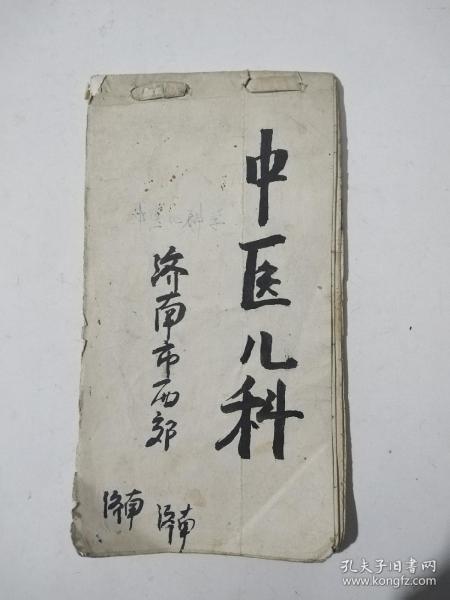 中医儿科
中医儿科学
济南市西郊
济南
济南
孔夫子旧书网
www.kongfz.com